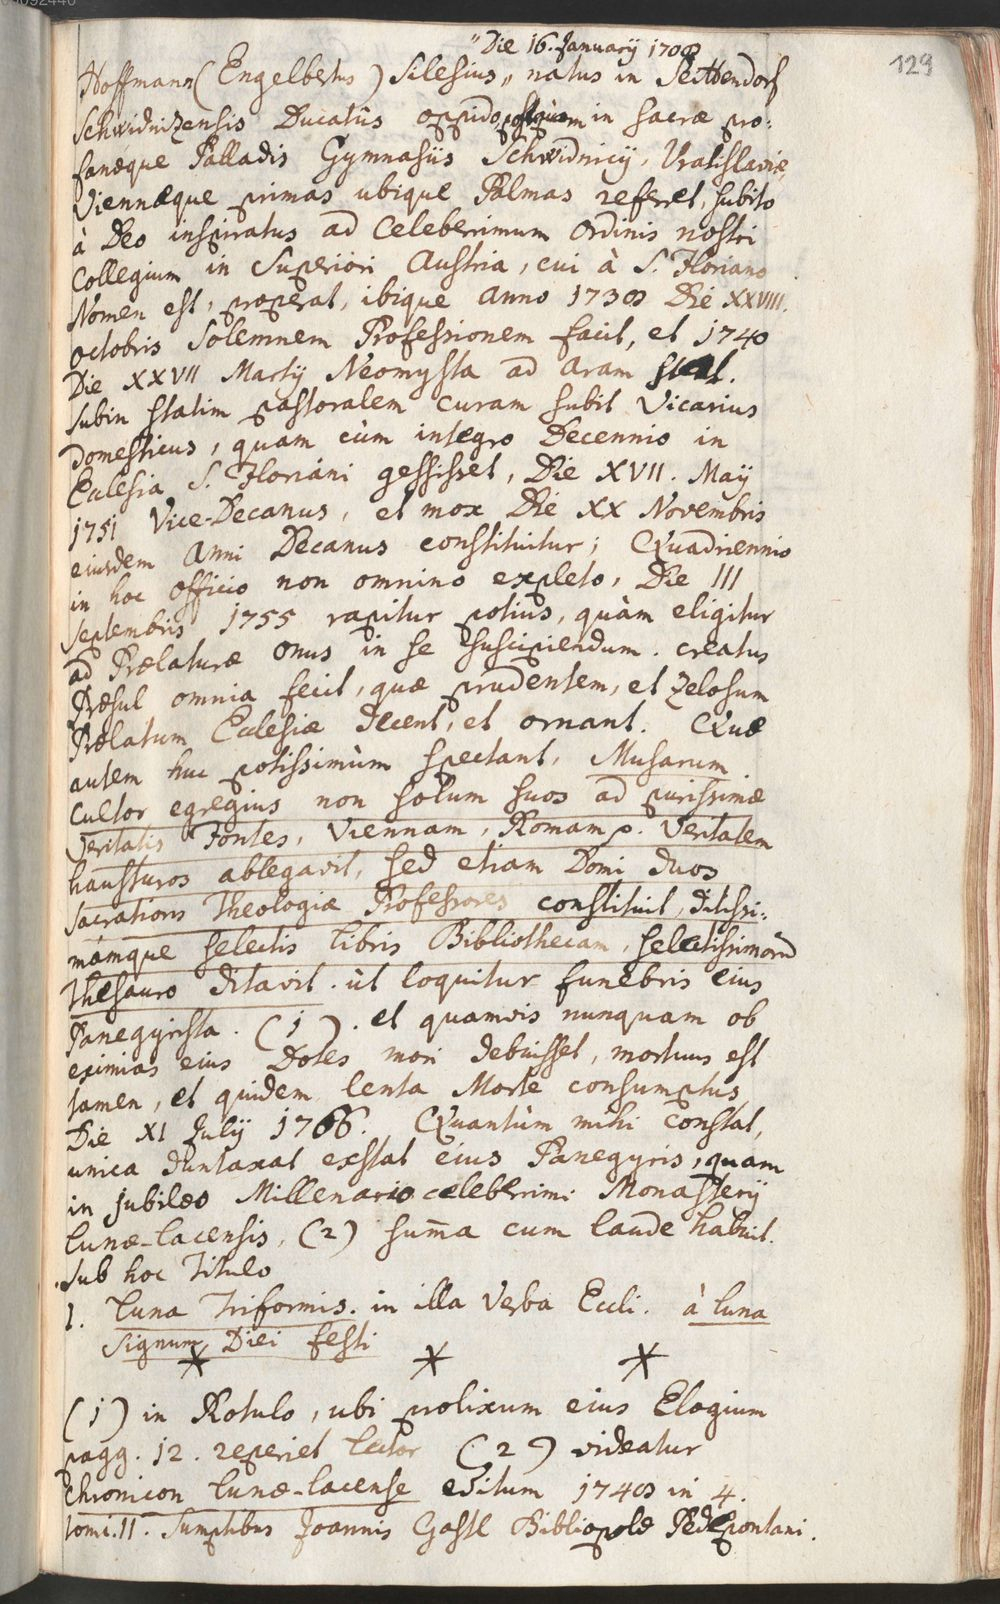 "Die 16. Januarij 1708
129
Hoffmann (Engelbertus) Silesius, natus in Seittendorf
Schwidnizensis Ducatûs oppido, postquam in sacræ pro-
fanæque Palladis Gymnasiis Schwidnicij, Vratislaviæ,
Viennæque primas ubique Palmas referet, subito
à Deo inspiratus ad Celeberrimum Ordinis nostri
Collegium in Superiori Austria, cui à S. Floriano
Nomen est, properat, ibique Anno 1738 Die XXVIII.
Octobris Solemnem Professionem facit, et 1740
Die XXVII Martij Neomysta ad Aram stat.
Subin statim pastoralem curam subit Vicarius
Domesticus, quam cùm integro Decennio in
Ecclesia S. Floriani gessisset, Die XVII. Maij
1751 Vice-Decanus, et mox Die XX Novembris
eiusdem Anni Decanus constituitur; Quadriennio
in hoc Officio non omnino expleto, Die III
Septembris 1755 rapitur potius, quàm eligitur
ad Prælaturæ Onus in se suscipiendum. creatus
Præsul omnia fecit, quæ prudentem, et zelosum
Prælatum Ecclesiæ decent, et ornant. Quæ
autem huc potissimùm spectant, Musarum
Cultor egregius non solum suos ad purissimæ
Veritatis Fontes, Viennam, Romam p. Veritatem
hausturos ablegavit, sed etiam Domi duos
sacratioris Theologiæ Professores constituit, ditissi-
mamque selectis libris Bibliothecam, selectissimorū
Thesauro ditavit. ùt loquitur funebris eius
Panegyrista. (1). et quamvis nunquam ob
eximias eius Dotes mori debuisset, mortuus est
tamen, et quidem lenta Morte consumptus,
Die XI Julij 1766. Quantùm mihi constat,
unica duntaxat exstat eius Panegyris, quam
in jubilæo Millenario celeberrimi Monasterij
Lunæ-lacensis, (2) sum̄a cum laude habuit.
sub hoc Titulo
1. Luna Triformis. in illa Verba Eccli. à luna
Signum Diei festi
* * *
(1) in Rotulo, ubi prolixum eius Elogium
pagg. 12. reperiet Lector (2) videatur
Chronicon Lunæ-lacense editum 1748 in 4.
tomi. II. Sumptibus Joannis Gastl Bibliopolæ Pedepontani.